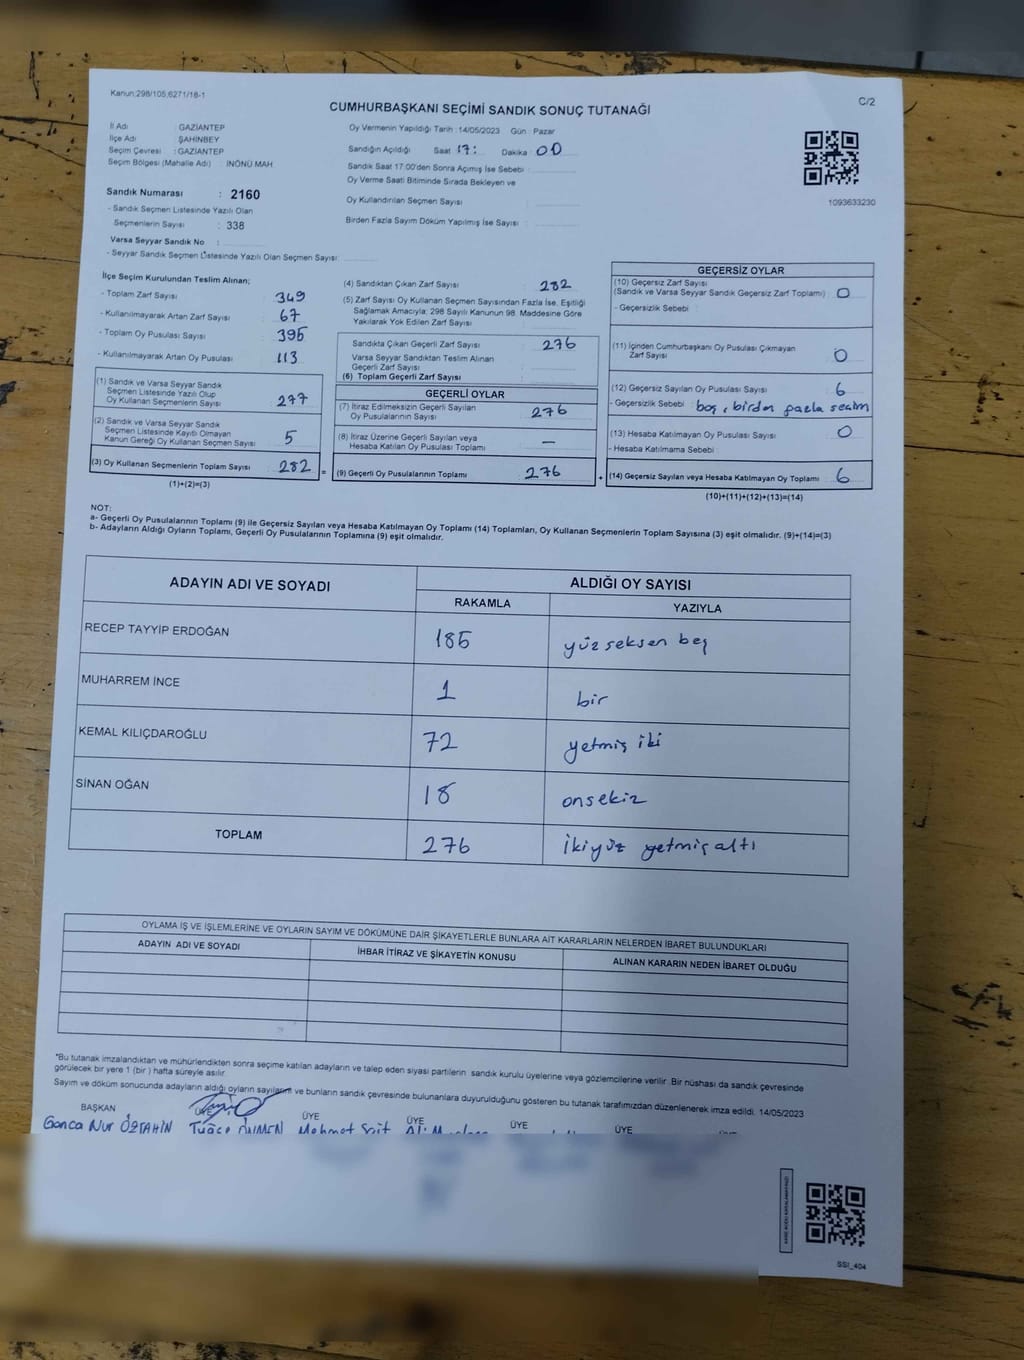 Kanun:298/105,6271/18-1
CUMHURBAŞKANI SEÇİMİ SANDIK SONUÇ TUTANAĞI
C/2
İl Adı : GAZİANTEP
İlçe Adı : ŞAHİNBEY
Seçim Çevresi : GAZİANTEP
Seçim Bölgesi (Mahalle Adı) : İNÖNÜ MAH
Oy Vermenin Yapıldığı Tarih :14/05/2023 Gün : Pazar
Sandığın Açıldığı Saat 17: Dakika 00
Sandık Saat 17:00'den Sonra Açımış İse Sebebi :
Oy Verme Saati Bitiminde Sırada Bekleyen ve
Oy Kullandırılan Seçmen Sayısı :
Birden Fazla Sayım Döküm Yapılmış İse Sayısı :
1093633230
Sandık Numarası : 2160
- Sandık Seçmen Listesinde Yazılı Olan
Seçmenlerin Sayısı : 338
Varsa Seyyar Sandık No :
- Seyyar Sandık Seçmen Listesinde Yazılı Olan Seçmen Sayısı:
İlçe Seçim Kurulundan Teslim Alınan;
- Toplam Zarf Sayısı 349
- Kullanılmayarak Artan Zarf Sayısı 67
- Toplam Oy Pusulası Sayısı 395
- Kullanılmayarak Artan Oy Pusulası 113
(1) Sandık ve Varsa Seyyar Sandık
Seçmen Listesinde Yazılı Olup
Oy Kullanan Seçmenlerin Sayısı 277
(2) Sandık ve Varsa Seyyar Sandık
Seçmen Listesinde Kayıtlı Olmayan
Kanun Gereği Oy Kullanan Seçmen Sayısı 5
(3) Oy Kullanan Seçmenlerin Toplam Sayısı 282 =
(1)+(2)=(3)
(4) Sandıktan Çıkan Zarf Sayısı 282
(5) Zarf Sayısı Oy Kullanan Seçmen Sayısından Fazla İse, Eşitliği
Sağlamak Amacıyla; 298 Sayılı Kanunun 98. Maddesine Göre
Yakılarak Yok Edilen Zarf Sayısı
Sandıkta Çıkan Geçerli Zarf Sayısı 276
Varsa Seyyar Sandıktan Teslim Alınan
Geçerli Zarf Sayısı
(6) Toplam Geçerli Zarf Sayısı
GEÇERLİ OYLAR
(7) İtiraz Edilmeksizin Geçerli Sayılan
Oy Pusulalarının Sayısı 276
(8) İtiraz Üzerine Geçerli Sayılan veya
Hesaba Katılan Oy Pusulası Toplamı —
(9) Geçerli Oy Pusulalarının Toplamı 276 +
GEÇERSİZ OYLAR
(10) Geçersiz Zarf Sayısı
(Sandık ve Varsa Seyyar Sandık Geçersiz Zarf Toplamı) : 0
- Geçersizlik Sebebi :
(11) İçinden Cumhurbaşkanı Oy Pusulası Çıkmayan
Zarf Sayısı 0
(12) Geçersiz Sayılan Oy Pusulası Sayısı 6
- Geçersizlik Sebebi : boş, birden fazla seçim
(13) Hesaba Katılmayan Oy Pusulası Sayısı 0
- Hesaba Katılmama Sebebi :
(14) Geçersiz Sayılan veya Hesaba Katılmayan Oy Toplamı 6
(10)+(11)+(12)+(13)=(14)
NOT:
a- Geçerli Oy Pusulalarının Toplamı (9) ile Geçersiz Sayılan veya Hesaba Katılmayan Oy Toplamı (14) Toplamları, Oy Kullanan Seçmenlerin Toplam Sayısına (3) eşit olmalıdır. (9)+(14)=(3)
b- Adayların Aldığı Oyların Toplamı, Geçerli Oy Pusulalarının Toplamına (9) eşit olmalıdır.
ADAYIN ADI VE SOYADI ALDIĞI OY SAYISI
RAKAMLA YAZIYLA
RECEP TAYYİP ERDOĞAN 185 yüz seksen beş
MUHARREM İNCE 1 bir
KEMAL KILIÇDAROĞLU 72 yetmiş iki
SİNAN OĞAN 18 onsekiz
TOPLAM 276 ikiyüz yetmiş altı
OYLAMA İŞ VE İŞLEMLERİNE VE OYLARIN SAYIM VE DÖKÜMÜNE DAİR ŞİKAYETLERLE BUNLARA AİT KARARLARIN NELERDEN İBARET BULUNDUKLARI
ADAYIN ADI VE SOYADI İHBAR İTİRAZ VE ŞİKAYETİN KONUSU ALINAN KARARIN NEDEN İBARET OLDUĞU
*Bu tutanak imzalandıktan ve mühürlendikten sonra seçime katılan adayların ve talep eden siyasi partilerin sandık kurulu üyelerine veya gözlemcilerine verilir. Bir nüshası da sandık çevresinde
görülecek bir yere 1 (bir ) hafta süreyle asılır.
Sayım ve döküm sonucunda adayların aldığı oyların sayılarını ve bunların sandık çevresinde bulunanlara duyurulduğunu gösteren bu tutanak tarafımızdan düzenlenerek imza edildi. 14/05/2023
BAŞKAN ÜYE ÜYE ÜYE ÜYE ÜYE
Gonca Nur Mehmet Sait
SSI_404